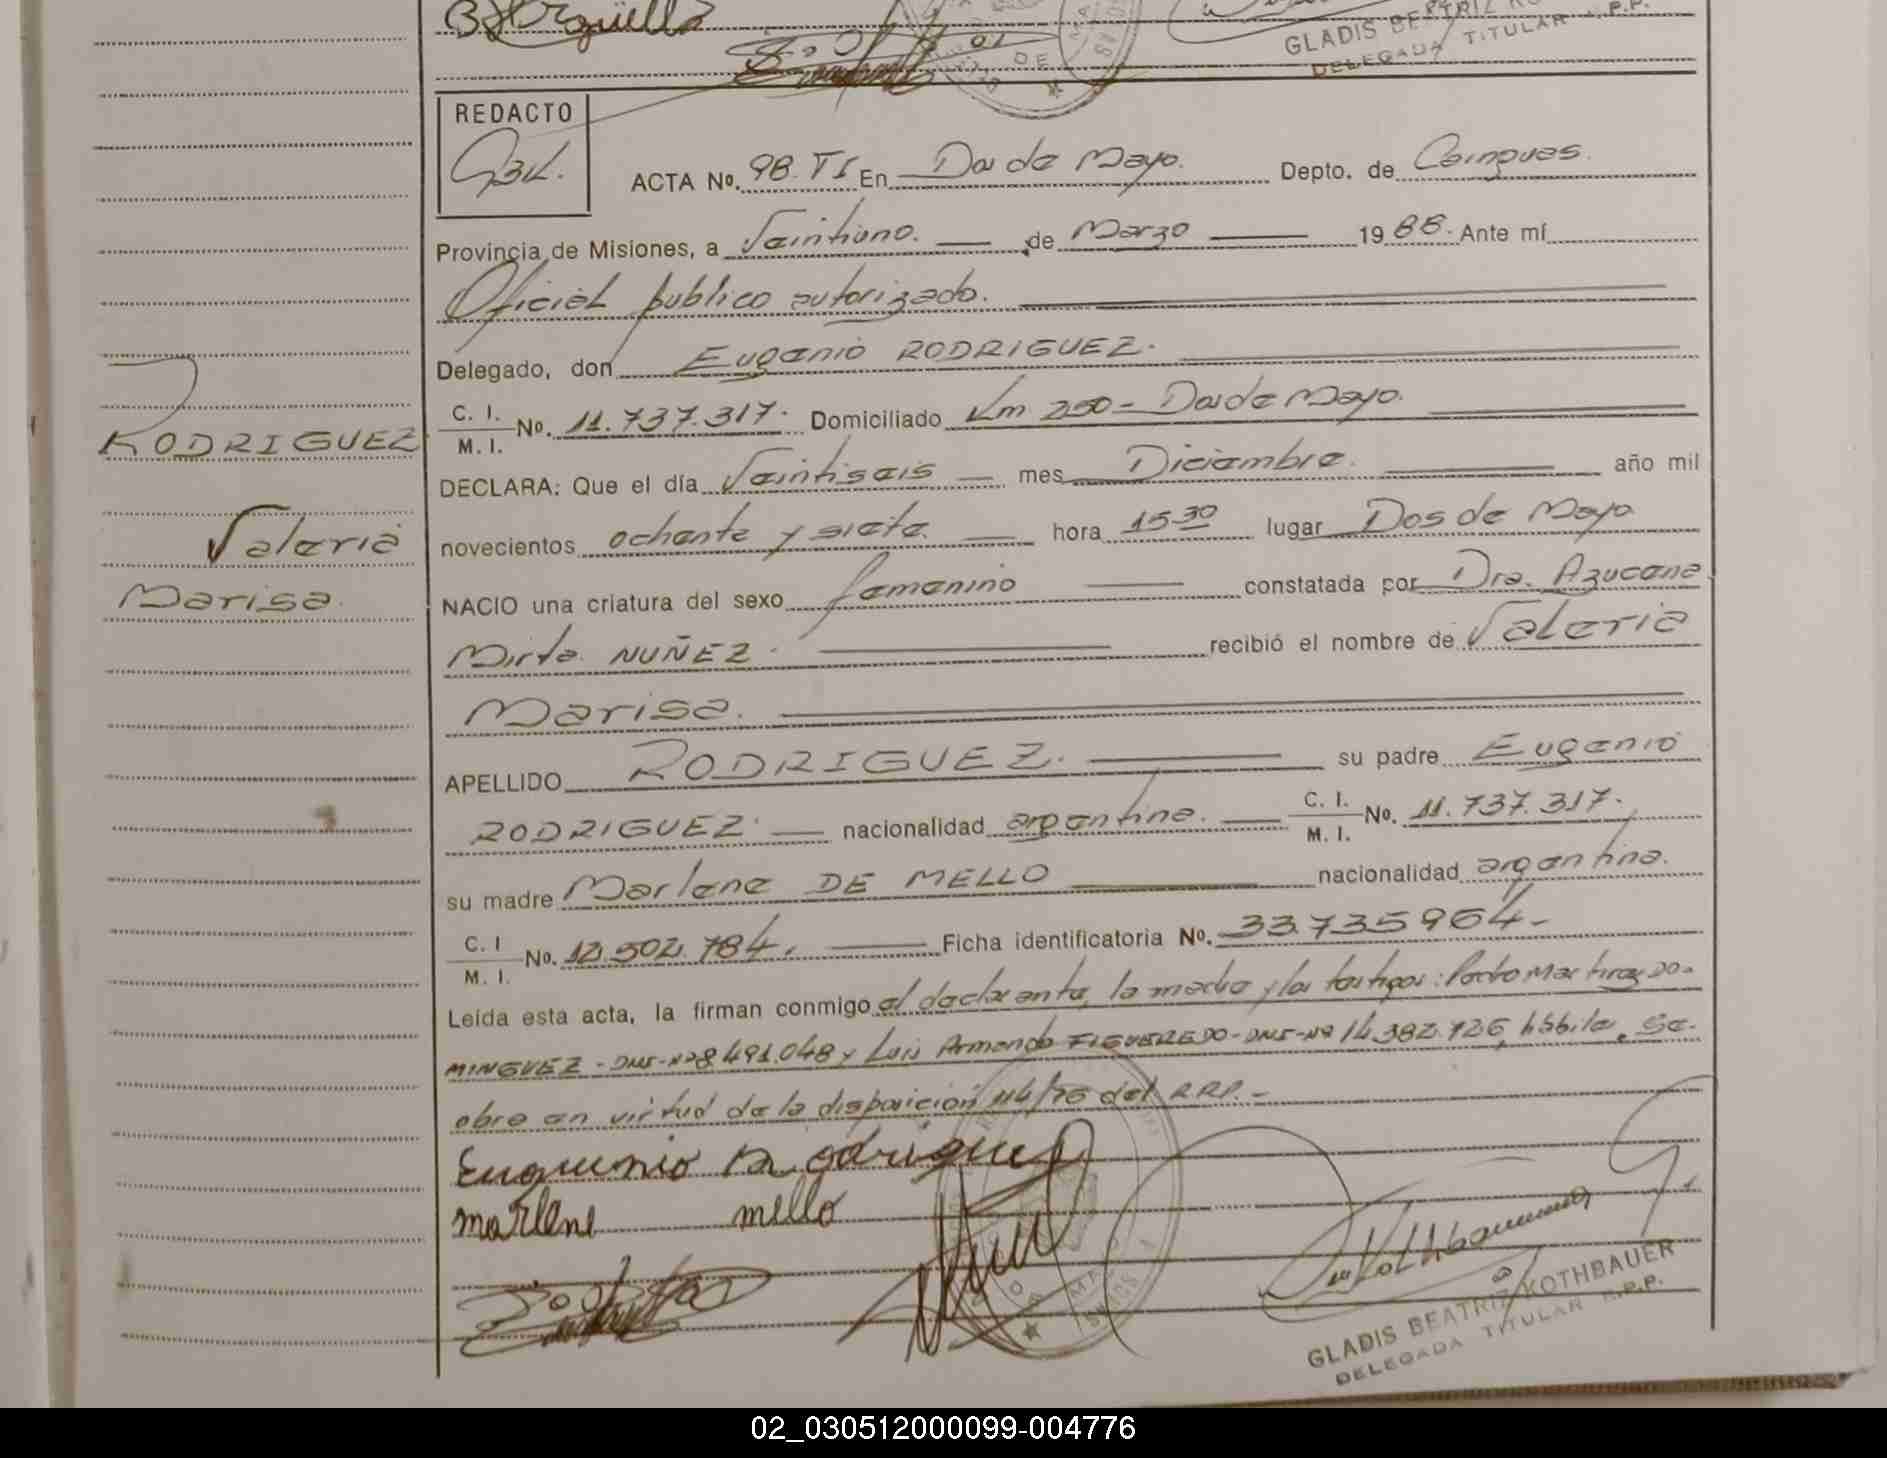 GLADIS BEATRIZ
DELEGADA TITULAR R.P.P.
REDACTO
ACTA No. 98. TI En Dos de Mayo. Depto. de Cainguas.
Provincia de Misiones, a Veintiuno. de Marzo 1988. Ante mí
Oficial publico autorizado.
Delegado, don Eugenio RODRIGUEZ.
C. I.
M. I. No. 11.737.317. Domiciliado Km 250 - Dos de Mayo.
RODRIGUEZ
DECLARA: Que el día Veintiseis mes Diciembre. año mil
Valeria
novecientos ochenta y siete. hora 15-30 lugar Dos de Mayo
Marisa.
NACIO una criatura del sexo femenino constatada por Dra. Azucena
Mirta NUÑEZ. recibió el nombre de Valeria
Marisa.
APELLIDO RODRIGUEZ. su padre Eugenio
RODRIGUEZ. nacionalidad argentina. C. I. M. I. No. 11.737.317.
su madre Marlene DE MELLO nacionalidad argentina.
C. I M. I. No. 12.502.784. Ficha identificatoria No. 33.735964-
Leída esta acta, la firman conmigo el declarante, la madre y los testigos: Pedro Martirez DO-
MINGUEZ - DNI-Nº 8.491.048 y Luis Armando FIGUEREDO - DNI-Nº 14.382.726, hábiles. Se
obra en virtud de la disposición 114/76 del R.R.P.-
Eugenio Rodrigues
marlene mello
GLADIS BEATRIZ KOTHBAUER
DELEGADA TITULAR R.P.P.
02_030512000099-004776